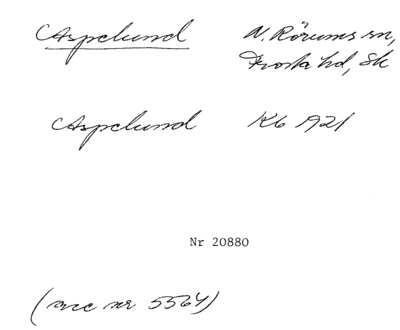 Aspelund N. Rörums sn,
Frosta hd, Sk
Aspelund Kb 1921
Nr 20880
(acc nr 5564)